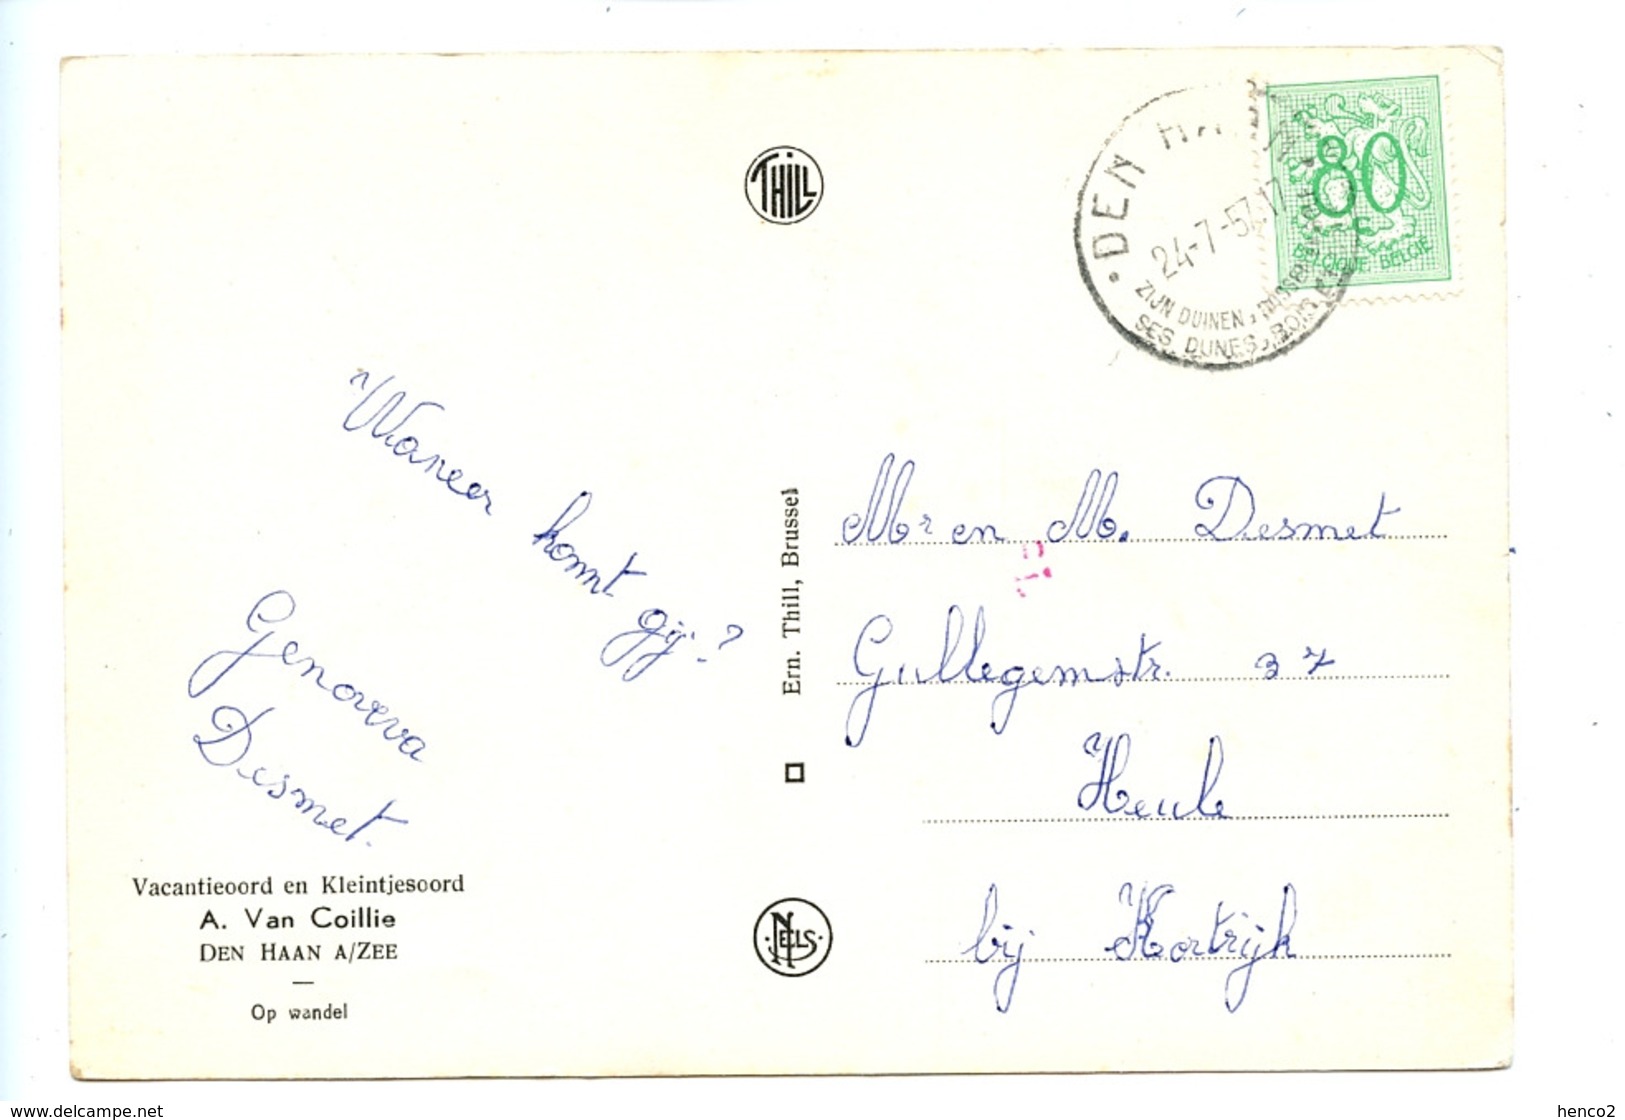 THILL
DEN HAAN
24-7-57 17
ZIJN DUINEN,
SES DUNES, BOIS
80
BELGIQUE BELGIË
Waneer komt gij?
Genoveva
Desmet.
Vacantieoord en Kleintjesoord
A. Van Coillie
DEN HAAN A/ZEE
Op wandel
Ern. Thill, Brussel
NELS
Mr en M. Desmet
Gullegemstr. 37
Heule
bij Kortrijk
www.delcampe.net
henco2